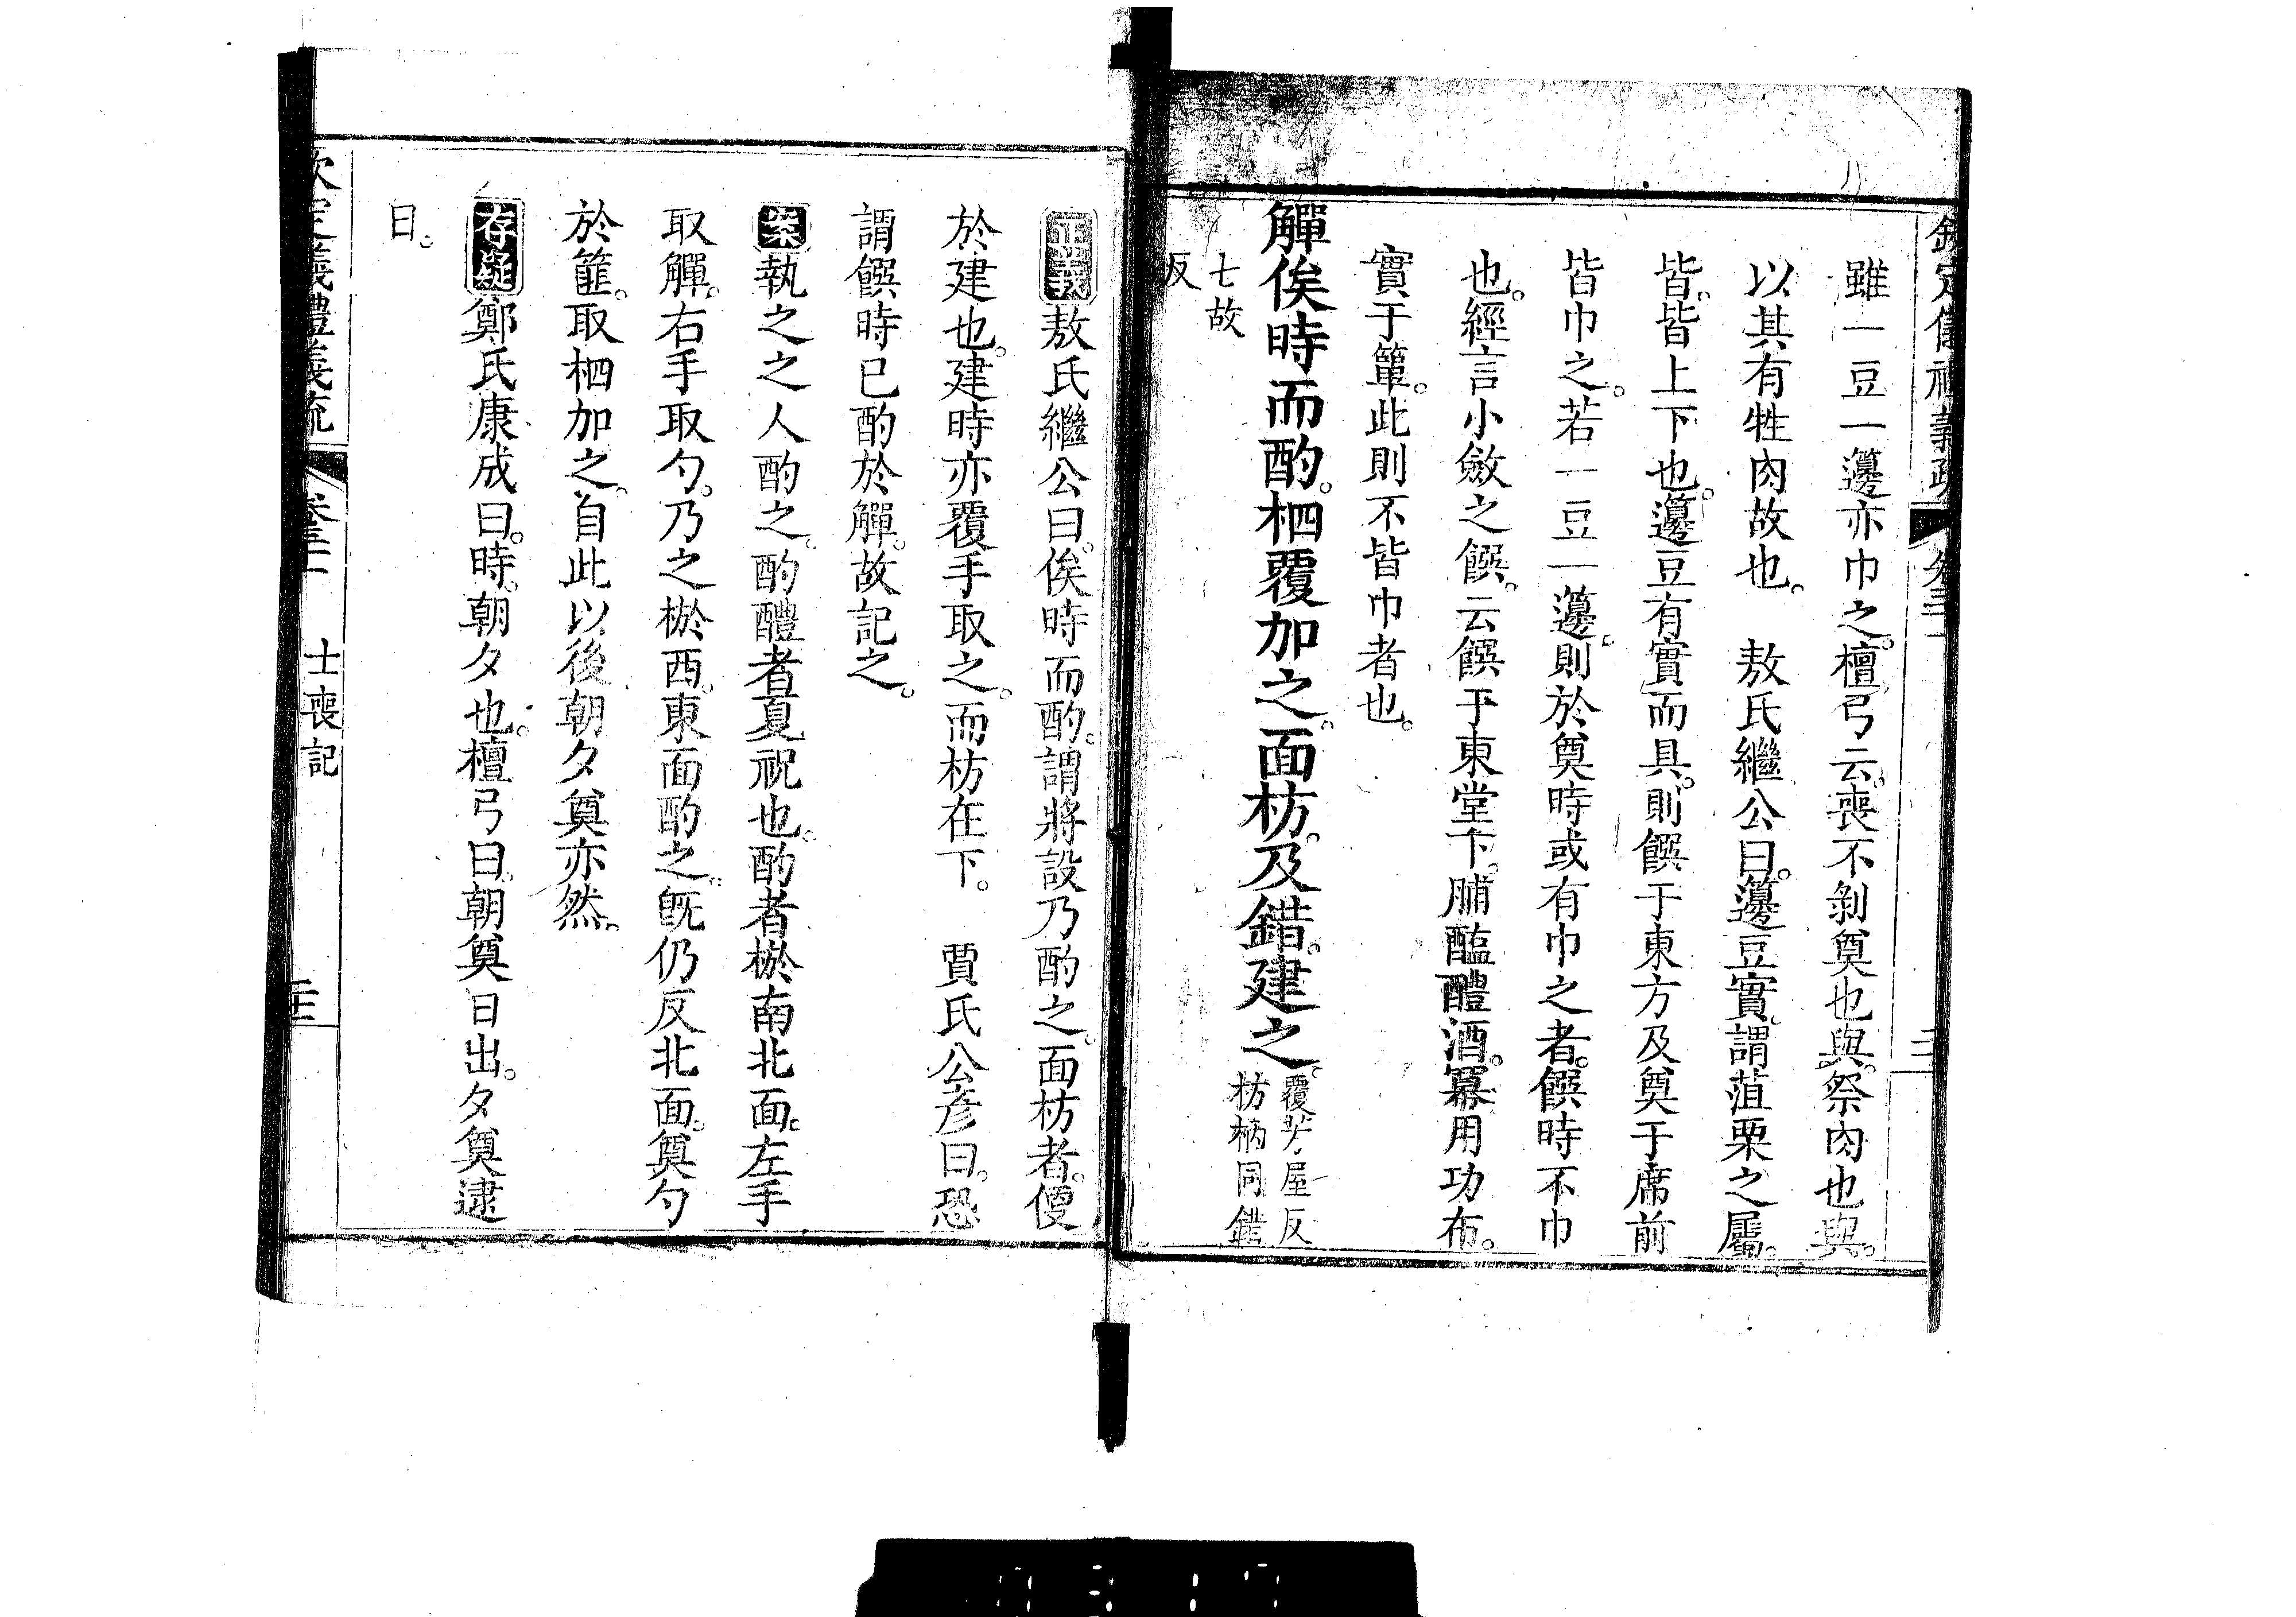 雖一豆一籩亦巾之。檀弓云。喪不剝奠也與。祭肉也與。
以其有牲肉故也。　敖氏繼公曰。籩豆實。謂菹栗之屬。
皆。皆上下也。籩豆有實而具。則饌于東方及奠于席前
皆巾之。若一豆一籩。則於奠時或有巾之者。饌時不巾
也。經言小斂之饌。云饌于東堂下。脯醢醴酒。冪用功布。
實于簞。此則不皆巾者也。
觶俟時而酌。柶覆加之。面枋。及錯。建之。覆芳屋反
枋柄同錯
七故
反
正義敖氏繼公曰。俟時而酌。謂將設乃酌之。面枋者。便
於建也。建時亦覆手取之。而枋在下。　賈氏公彥曰。恐
謂饌時已酌於觶。故記之。
案執之之人酌之。酌醴者夏祝也。酌者棜南北面。左手
取觶。右手取勺。乃之棜西。東面酌之。既仍反北面。奠勺
於篚。取柶加之。自此以後朝夕奠亦然。
存疑鄭氏康成曰。時。朝夕也。檀弓曰。朝奠日出。夕奠逮
日。
士喪記